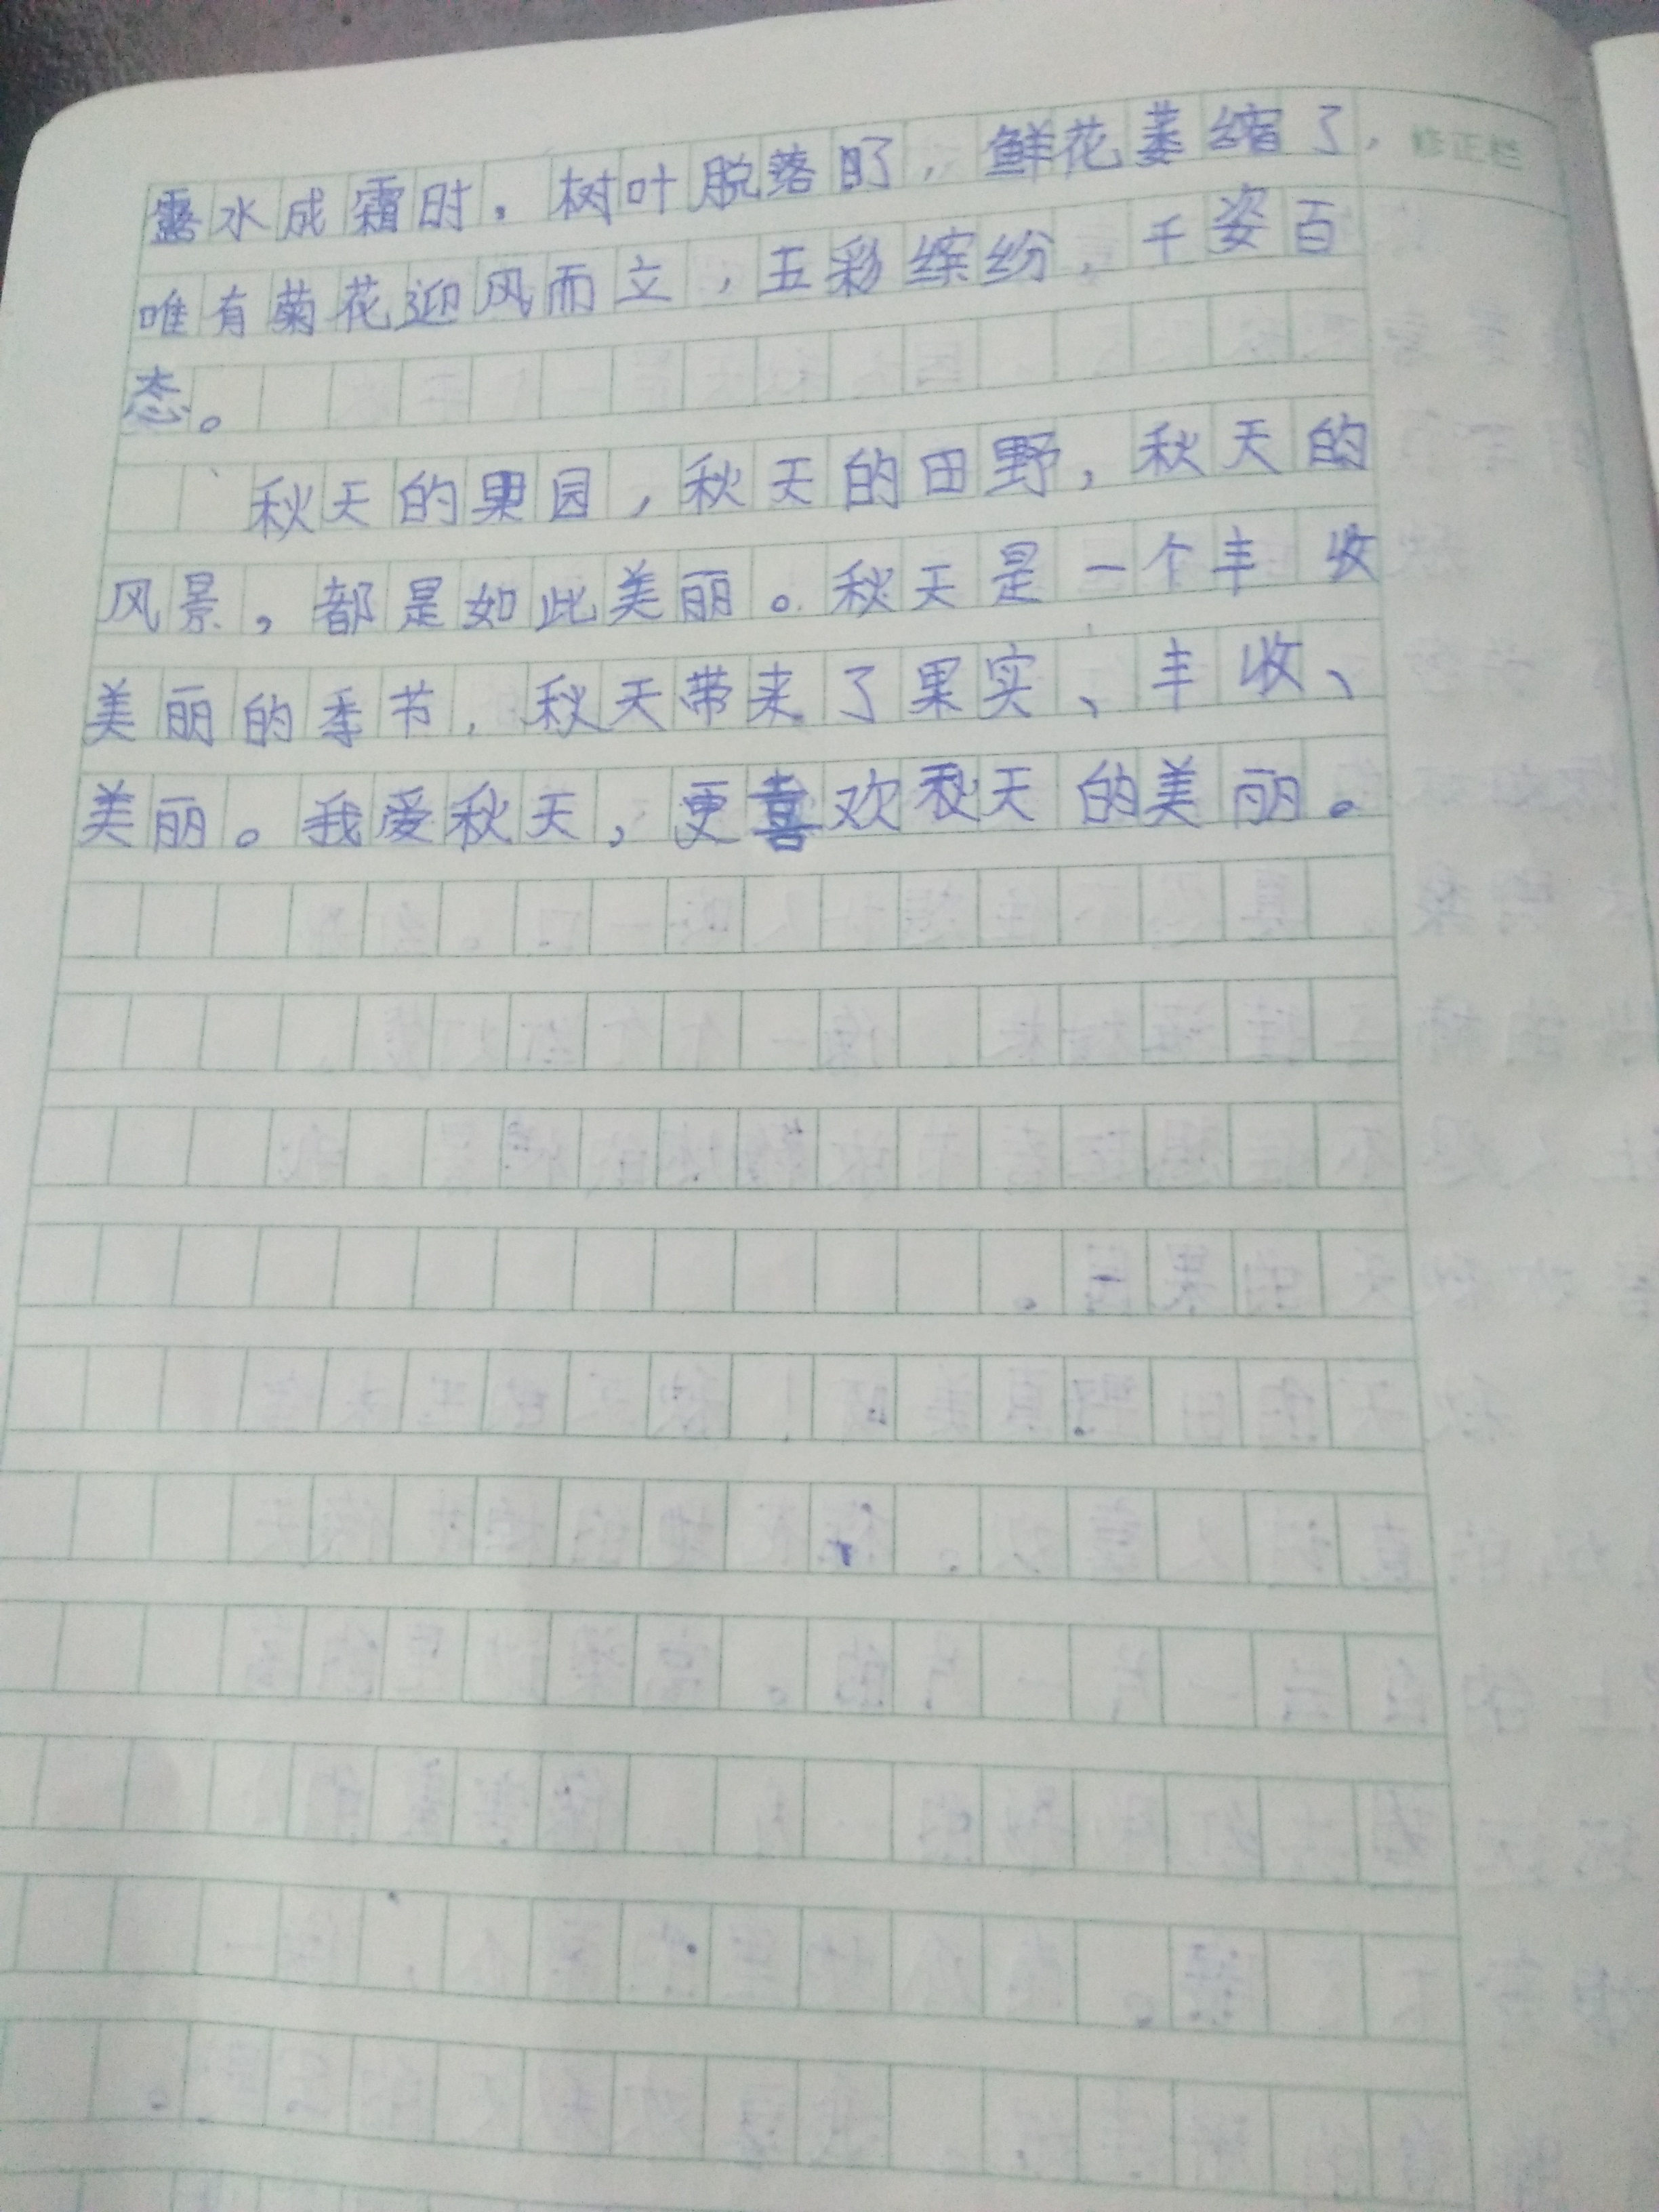 修正栏
露水成霜时，树叶脱落了，鲜花萎缩了，
唯有菊花迎风而立，五彩缤纷，千姿百
态。
秋天的果园，秋天的田野，秋天的
风景，都是如此美丽。秋天是一个丰收
美丽的季节，秋天带来了果实、丰收、
美丽。我爱秋天，更喜欢秋天的美丽。